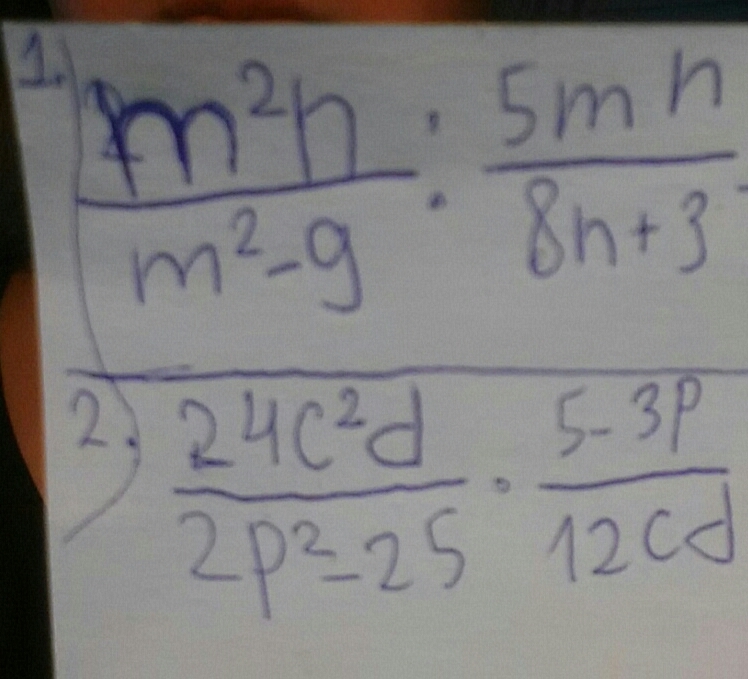 1. m²n / m²-9 : 5mn / 8n+3
2. 24c²d / 2p²-25 · 5-3p / 12cd